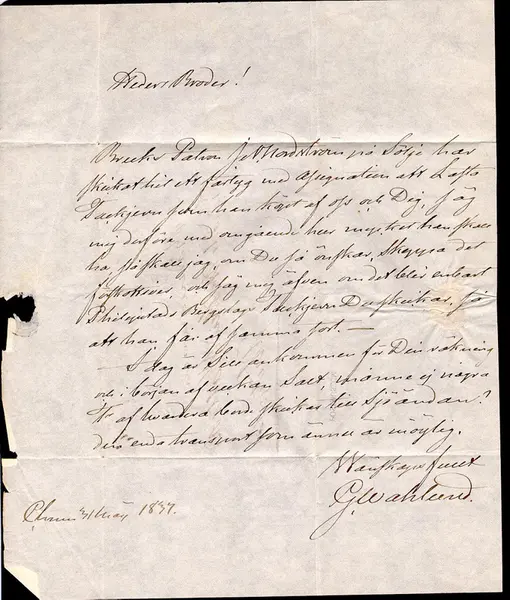 Heders Broder!
Bruks Patron J. A. Nordström på Sölje har
skickat hit ett fartyg med assignation att Lasta
Tackjern som han köpt af oss och Dig, säg
mig derföre med omgående huru mycket han skall
ha, så skall jag, om Du så önskar, skeppa det
och säg mig äfven om det blir enbart
Philipstads Bergslags Tackjern Du skickar, så
att han får af samma sort. —
— I dag är Sill ankommen för Din räkning
och i början af veckan Salt, månne ej några
af wardera borde skickas till Sjöändan?
den enda transport som ännu är möjlig.
Wänskapsfullt
G. Wahlund.
Chrhmn 31 Maj 1837.